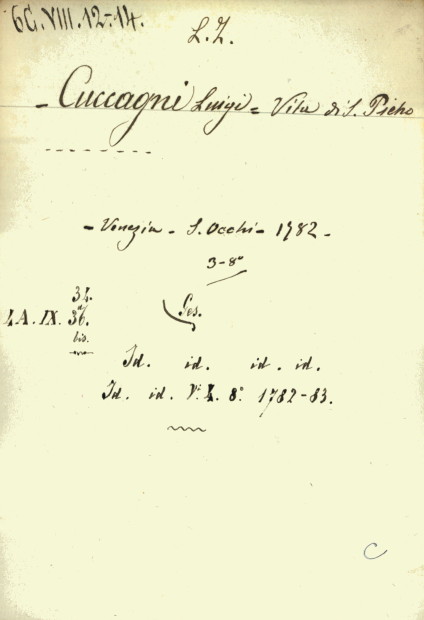 6C.VIII.12-14.
L.Z.
- Cuccagni Luigi = Vita di S. Pietro
- Venezia - S. Occhi - 1782 -
3-8º
34.
a
4A.IX. 36. Ges.
bis.
Id. id. id. id.
Id. id. Vi. 4. 8º 1782-83.
C